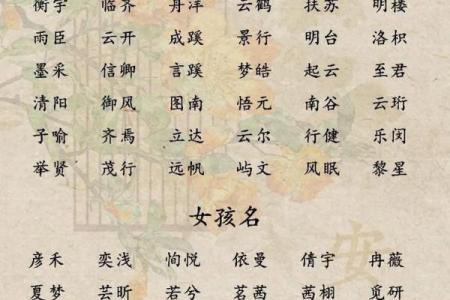 衡宇 临齐 舟洋 云鹤 扶苏 明楼
雨臣 云开 成蹊 景行 明台 洛枳
墨采 信卿 言蹊 梦皓 起云 至君
清阳 御风 图南 悟元 南谷 云珩
子喻 齐焉 立达 云尔 行健 乐闵
举贤 茂行 远帆 屿文 风眠 黎星
女孩名
彦禾 奕浅 恂悦 依曼 倩宇 冉薇
夏梦 芸昕 若兮 茗茜 茜栩 觅研
安